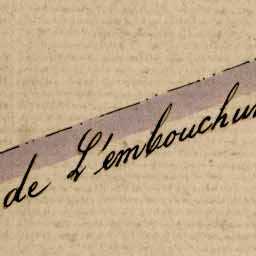 de L'embouchu